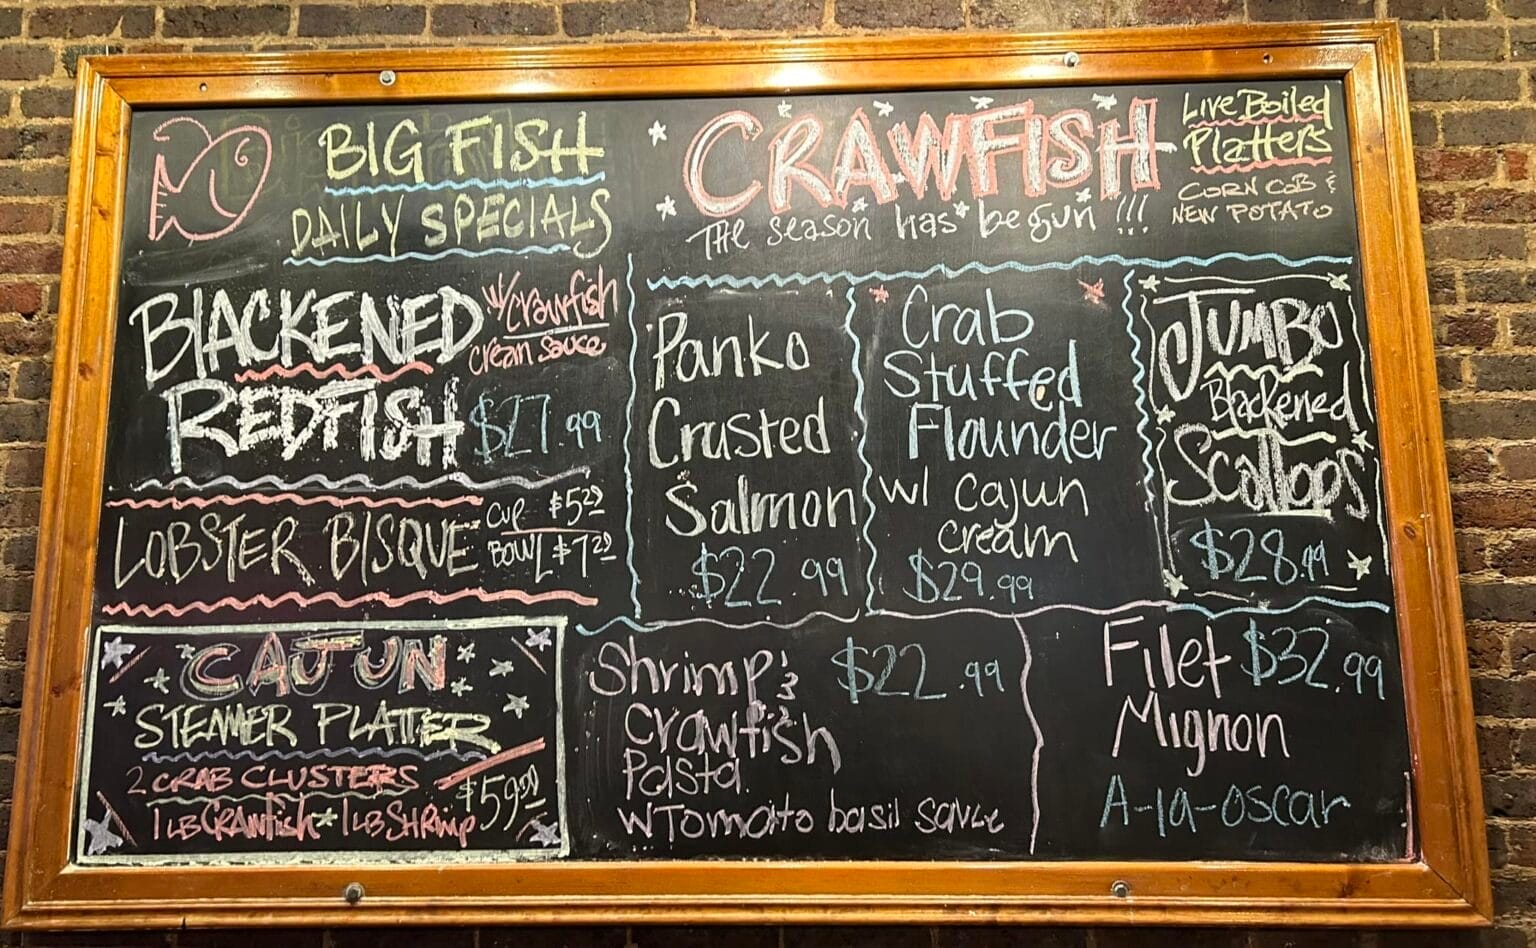 BIG FISH
DAILY SPECIALS
CRAWFISH
THE season has begun !!!
Live Boiled
Platters
CORN COB &
NEW POTATO
BLACKENED
REDFISH
w/ crawfish
cream sauce
$27.99
LOBSTER BISQUE
CUP $5.29
BOWL $7.29
CAJUN
STEAMER PLATTER
2 CRAB CLUSTERS
1 LB CRAWfish * 1 LB SHRimp
Panko
Crusted
Salmon
$22.99
Crab
Stuffed
Flounder
w/ cajun
cream
$29.99
JUMBO
Blackened
Scallops
$28.99
Shrimp &
crawfish
Pasta
w Tomato basil sauce
$22.99
Filet
Mignon
$32.99
A-la-oscar